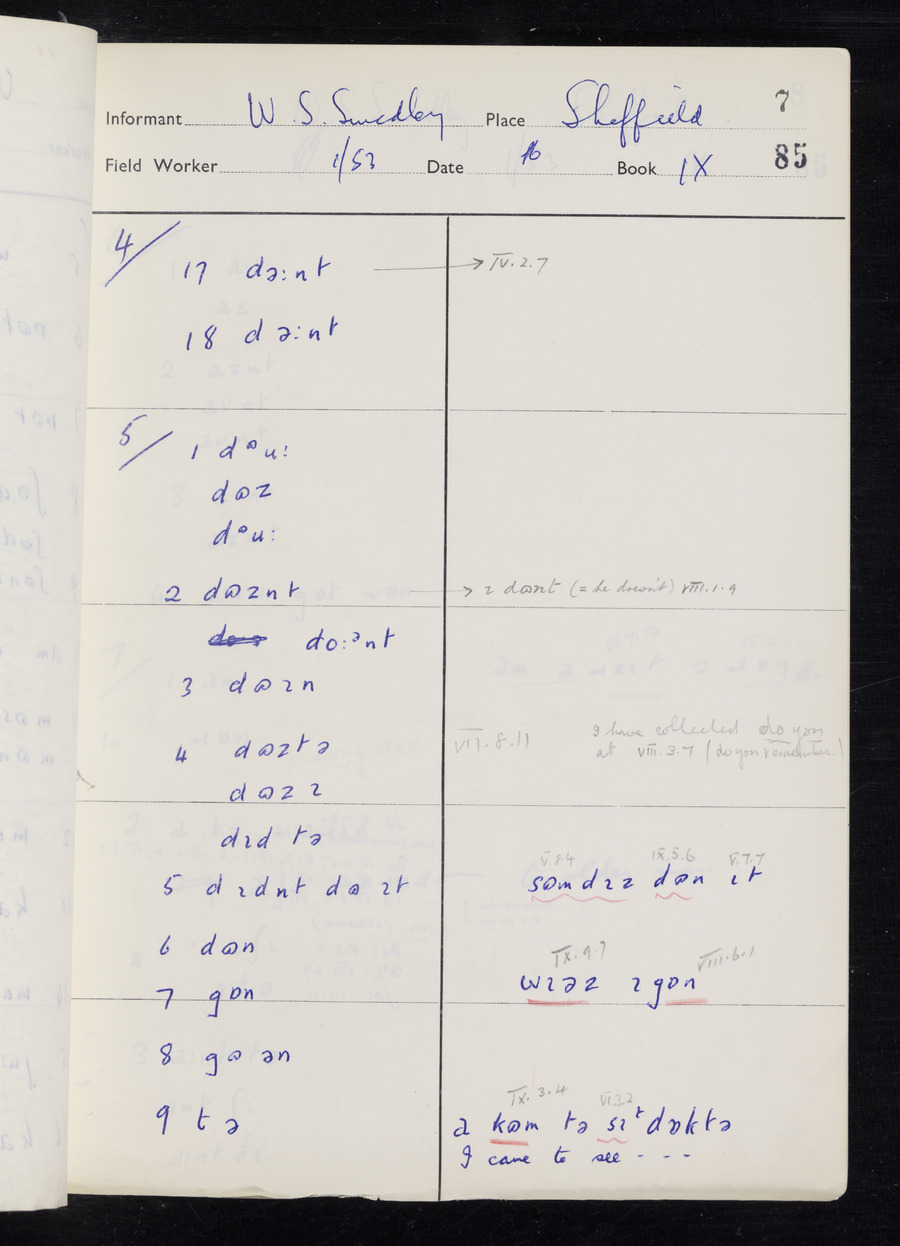 Informant W. S. Smedley Place Sheffield 7
Field Worker 1/53 Date Book IX 85
4/
17 dəːnt → IV.2.7
18 dəːnt
5/
1 dᶷuː
dɷz
dᶷuː
2 dɷznt → ɪ dɷnt (= he doesn't) VIII.1.9
doːᵊnt
3 dɷɪn
4 dɷztə VII.8.11 I have collected do you
at VIII.3.7 (do you remember)
dɷz ɪ
dɪd tə
5 dɪdnt dɷ ɪt
V.8.4 IX.5.6 V.7.7
sɷmdɪz dɷn ɪt
6 dɷn
IX.9.7 VIII.6.1
7 gɒn wɪəz ɪ gɒn
8 gɷ ən
IX.3.4 VI.3.2
9 t ə a kɷm tə sɪ ᵗdɒktə
I came to see - - -